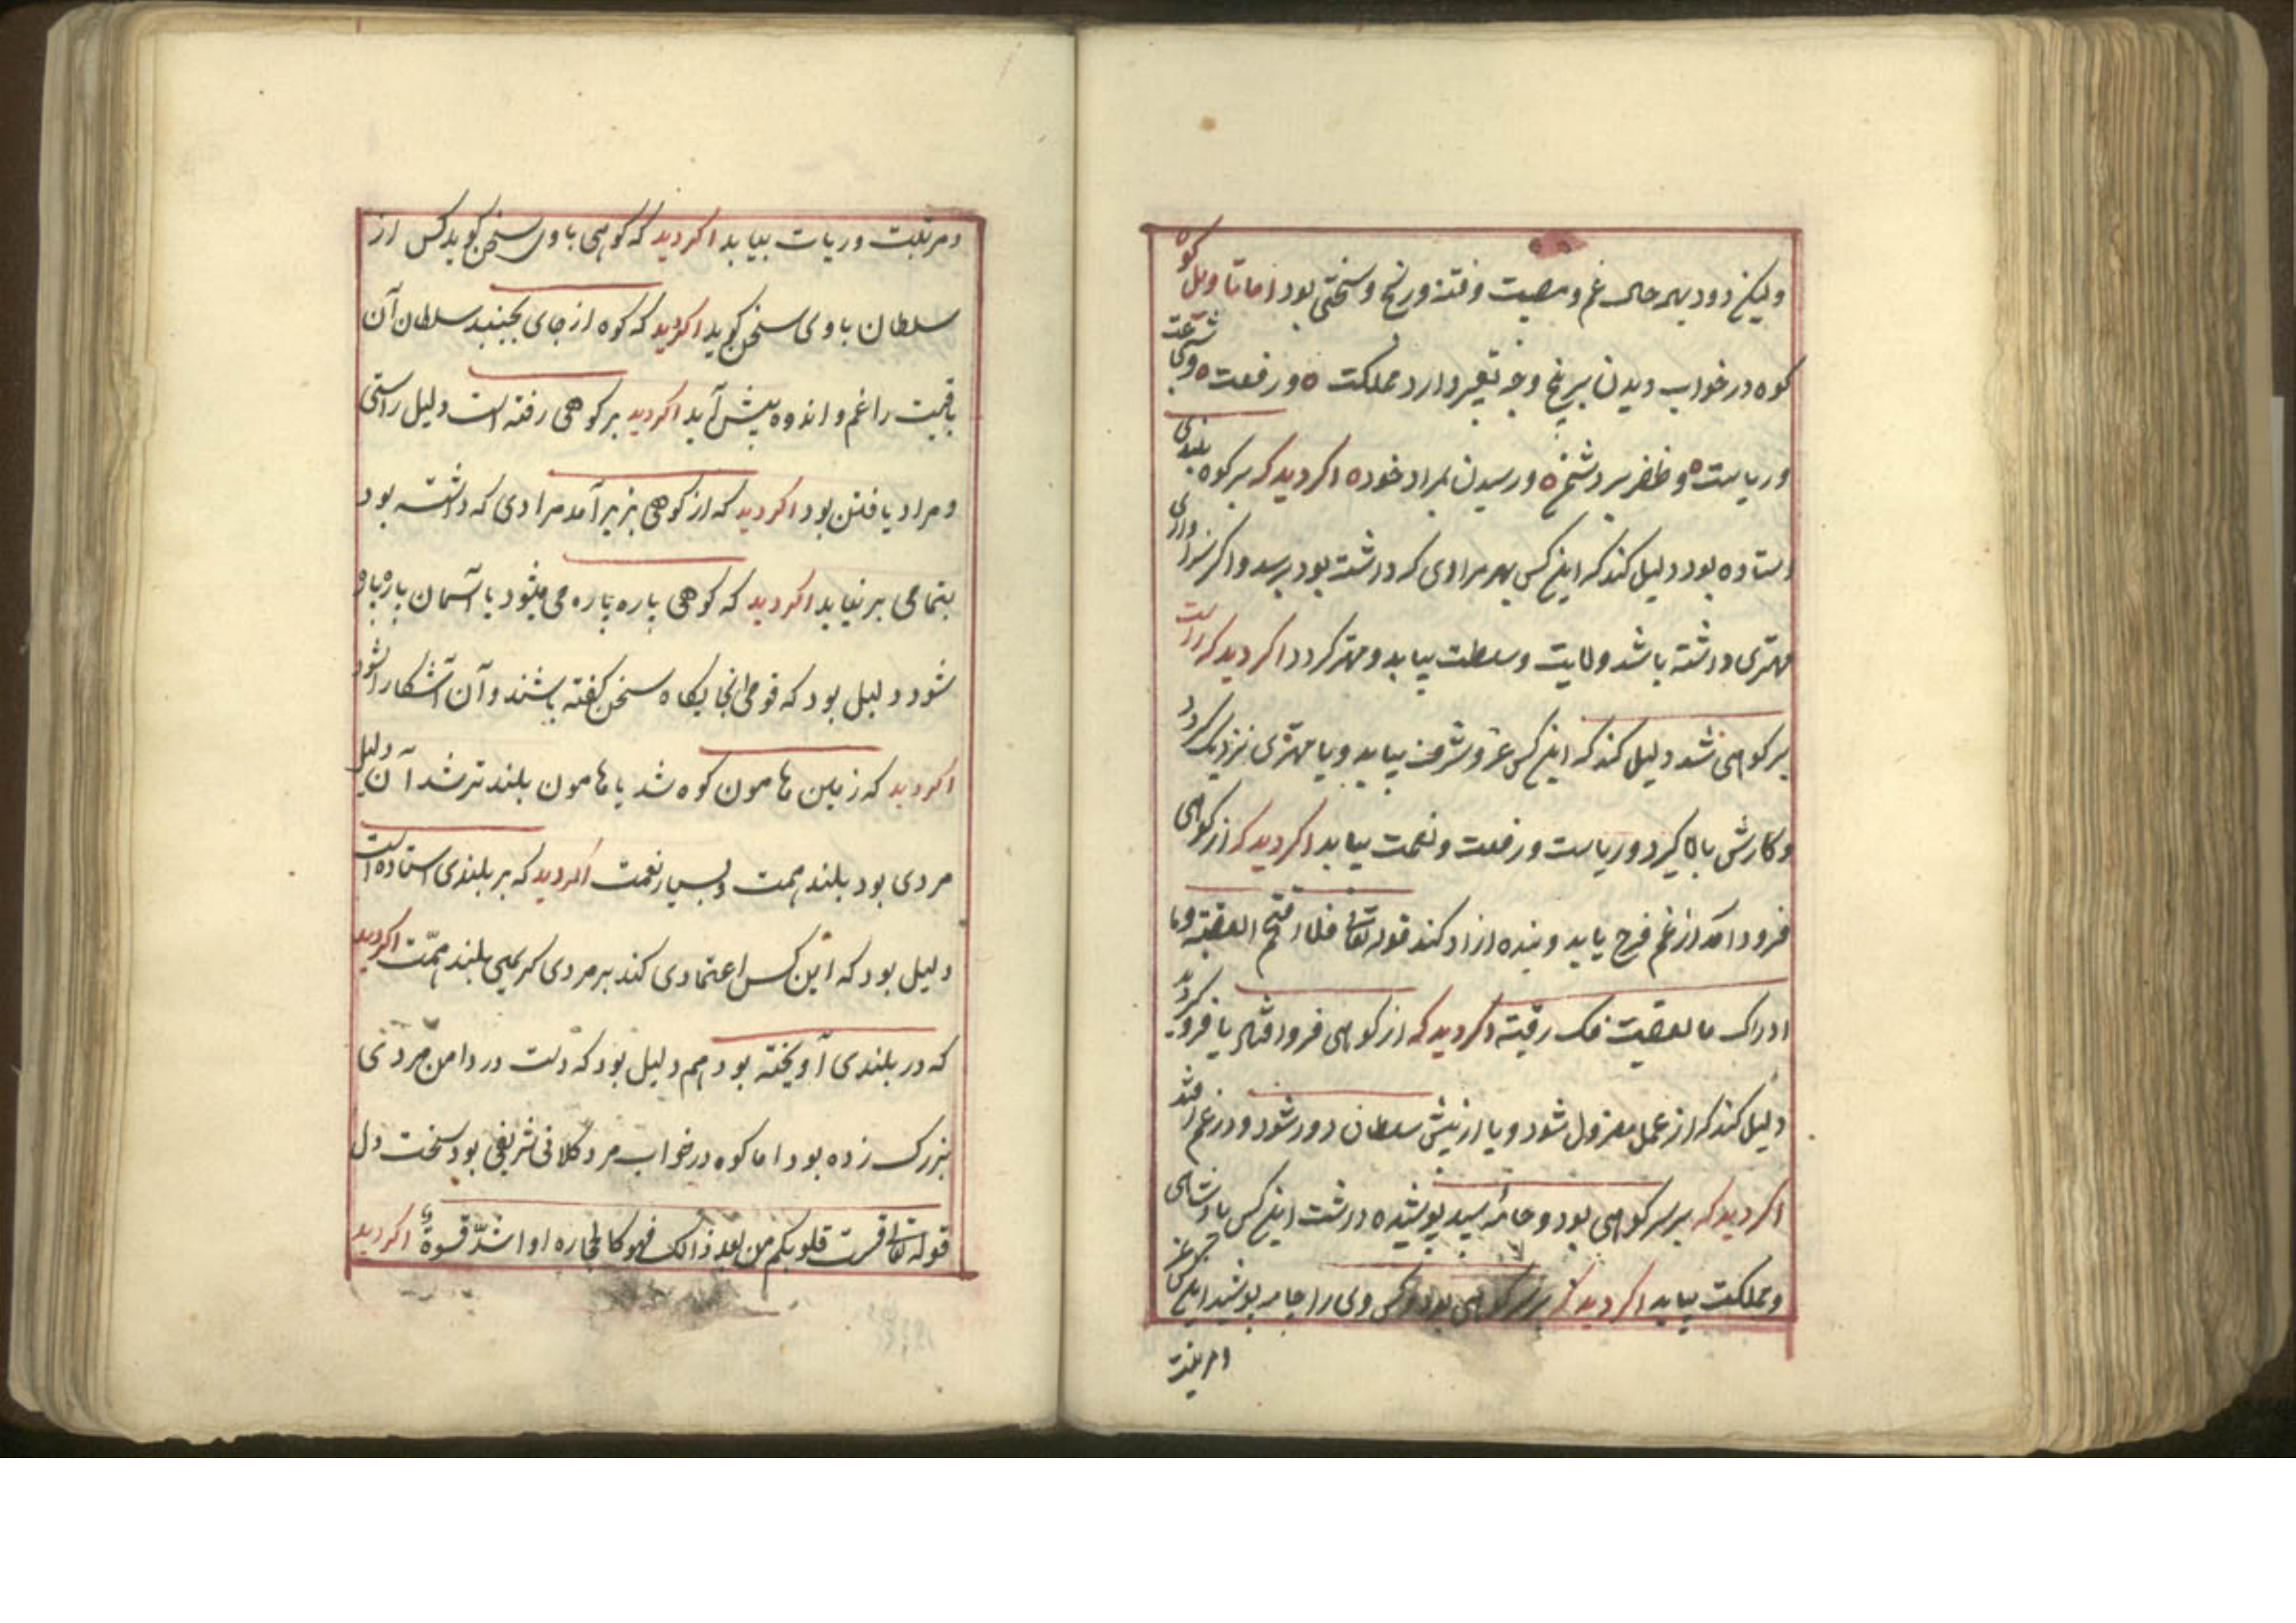 ولیکن دود بهر حال غم و مصیبت و فتنه و رنج و سختی بود اما تاویل کوه
کوه در خواب دیدن بر پنج وجه تعبیر دارد مملکت ه و رفعت ه و شجاعت
و ریاست ه و ظفر بر دشمن ه و رسیدن بمراد خود ه اکر دید که بر کوه بلندی
استاده بود دلیل کند که اینکس بهر مرادی که داشته بود برسد و اکر سزاواری
مهتری داشته باشد ولایت و سلطنت بیابد و مهتر کردد اکر دید که راست
بر کوهی شد دلیل کند که اینکس عز و شرف بیابد و یا مهتری نزدیک کردد
و کارش بالا کیرد و ریاست و رفعت و نعمت بیابد اکر دید که از کوهی
فرود آمد از غم فرج یابد و بنده ازاد کند قوله تعالی فلا اقتحم العقبة وما
ادراک ما العقبت فک رقبة اکر دید که از کوهی فرو افتاد یا فرو کردید
دلیل کند که از عمل معزول شود و یا از پیش سلطان دور شود و در غم افتد
اکر دید که بر سر کوهی بود و جامه سپید پوشیده داشت اینکس پادشاهی
و مملکت بیابد اکر دید که بر سر کوهی بود و کس وی را جامه پوشید اینکس عز
و مرتبت
و مرتبت و ریاست بیابد اکر دید که کوهی با وی سخن کوید کس از
سلطان با وی سخن کوید اکر دید که کوه از جای بجنبید سلطان آن
باقیمت را غم و اندوه پیش آید اکر دید بر کوهی رفته است دلیل راستی
و مراد یافتن بود اکر دید که از کوهی بزیر آمد مرادی که داشته بود
بتمامی بر نیاید اکر دید که کوهی پاره پاره می میشود یا آسمان پاره پاره
شود دلیل بود که قومی انجایکاه سخن کفته باشند و آن آشکارا شود
اکر دید که زمین هامون کوه شد یا هامون بلند تر شد آن دلیل
مردی بود بلند همت و بسیار نعمت اکر دید که بر بلندی استاده است
دلیل بود که این کس اعتمادی کند بر مردی کریمی بلند همّت اکر دید
که در بلندی آویخته بود هم دلیل بود که دست در دامن مردی
بزرک زده بود اما کوه در خواب مرد کلانی شریفی بود سخت دل
قوله تعالی قست قلوبکم من بعد ذالک فهو کالحجاره او اشدّ قسوةً اکر دید